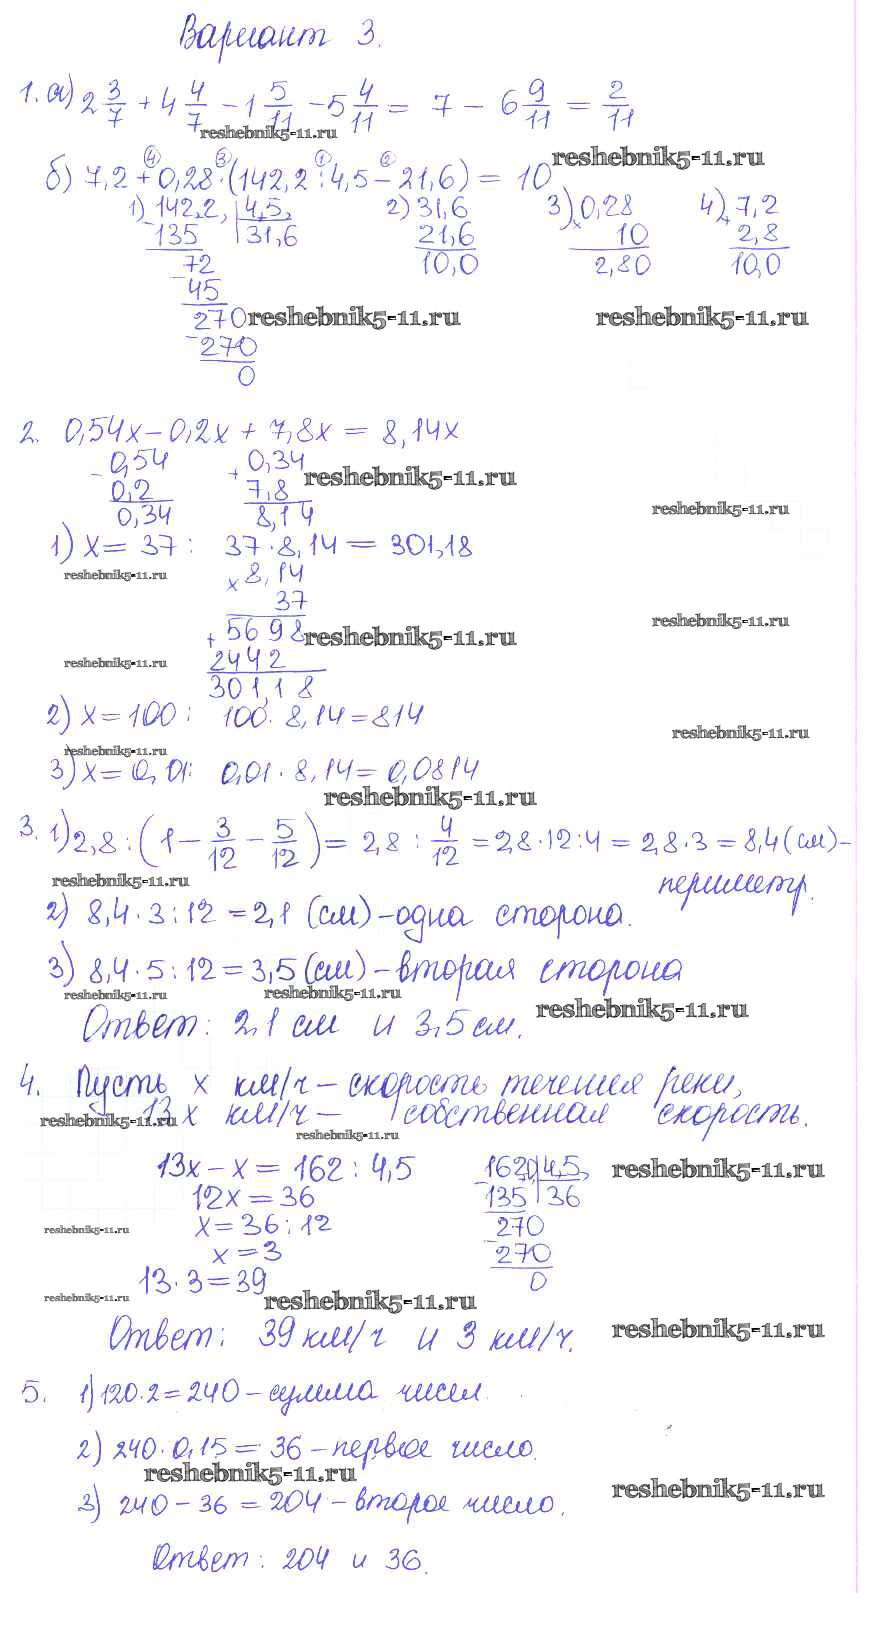 Вариант 3.
1. а) 2 3/7 + 4 4/7 - 1 5/11 - 5 4/11 = 7 - 6 9/11 = 2/11
reshebnik5-11.ru
reshebnik5-11.ru
④ ③ ① ②
б) 7,2 + 0,28 · (142,2 : 4,5 - 21,6) = 10
1) 142,2, | 4,5, 2) 31,6 3) 0,28 4) 7,2
- 135 | 31,6 - 21,6 × 10 + 2,8
72 10,0 2,80 10,0
- 45
270
reshebnik5-11.ru reshebnik5-11.ru
- 270
0
2. 0,54x - 0,2x + 7,8x = 8,14x
- 0,54 + 0,34
reshebnik5-11.ru
0,2 7,8
reshebnik5-11.ru
0,34 8,14
1) x = 37 : 37 · 8,14 = 301,18
reshebnik5-11.ru
× 8,14
37
reshebnik5-11.ru
+ 5698
reshebnik5-11.ru
2442
reshebnik5-11.ru
301,18
2) x = 100 : 100 · 8,14 = 814
reshebnik5-11.ru
reshebnik5-11.ru
3) x = 0,01 : 0,01 · 8,14 = 0,0814
reshebnik5-11.ru
3. 1) 2,8 : (1 - 3/12 - 5/12) = 2,8 : 4/12 = 2,8 · 12 : 4 = 2,8 · 3 = 8,4 (см) -
reshebnik5-11.ru
периметр.
2) 8,4 · 3 : 12 = 2,1 (см) - одна сторона.
3) 8,4 · 5 : 12 = 3,5 (см) - вторая сторона
reshebnik5-11.ru reshebnik5-11.ru
reshebnik5-11.ru
Ответ: 2,1 см и 3,5 см.
4. Пусть x км/ч - скорость течения реки,
13x км/ч - собственная скорость.
reshebnik5-11.ru
reshebnik5-11.ru
13x - x = 162 : 4,5 162,0, | 4,5,
reshebnik5-11.ru
12x = 36 - 135 | 36
x = 36 : 12 270
reshebnik5-11.ru
x = 3 - 270
13 · 3 = 39 0
reshebnik5-11.ru reshebnik5-11.ru
Ответ: 39 км/ч и 3 км/ч.
reshebnik5-11.ru
5. 1) 120 · 2 = 240 - сумма чисел.
2) 240 · 0,15 = 36 - первое число.
reshebnik5-11.ru
reshebnik5-11.ru
3) 240 - 36 = 204 - второе число.
Ответ: 204 и 36.